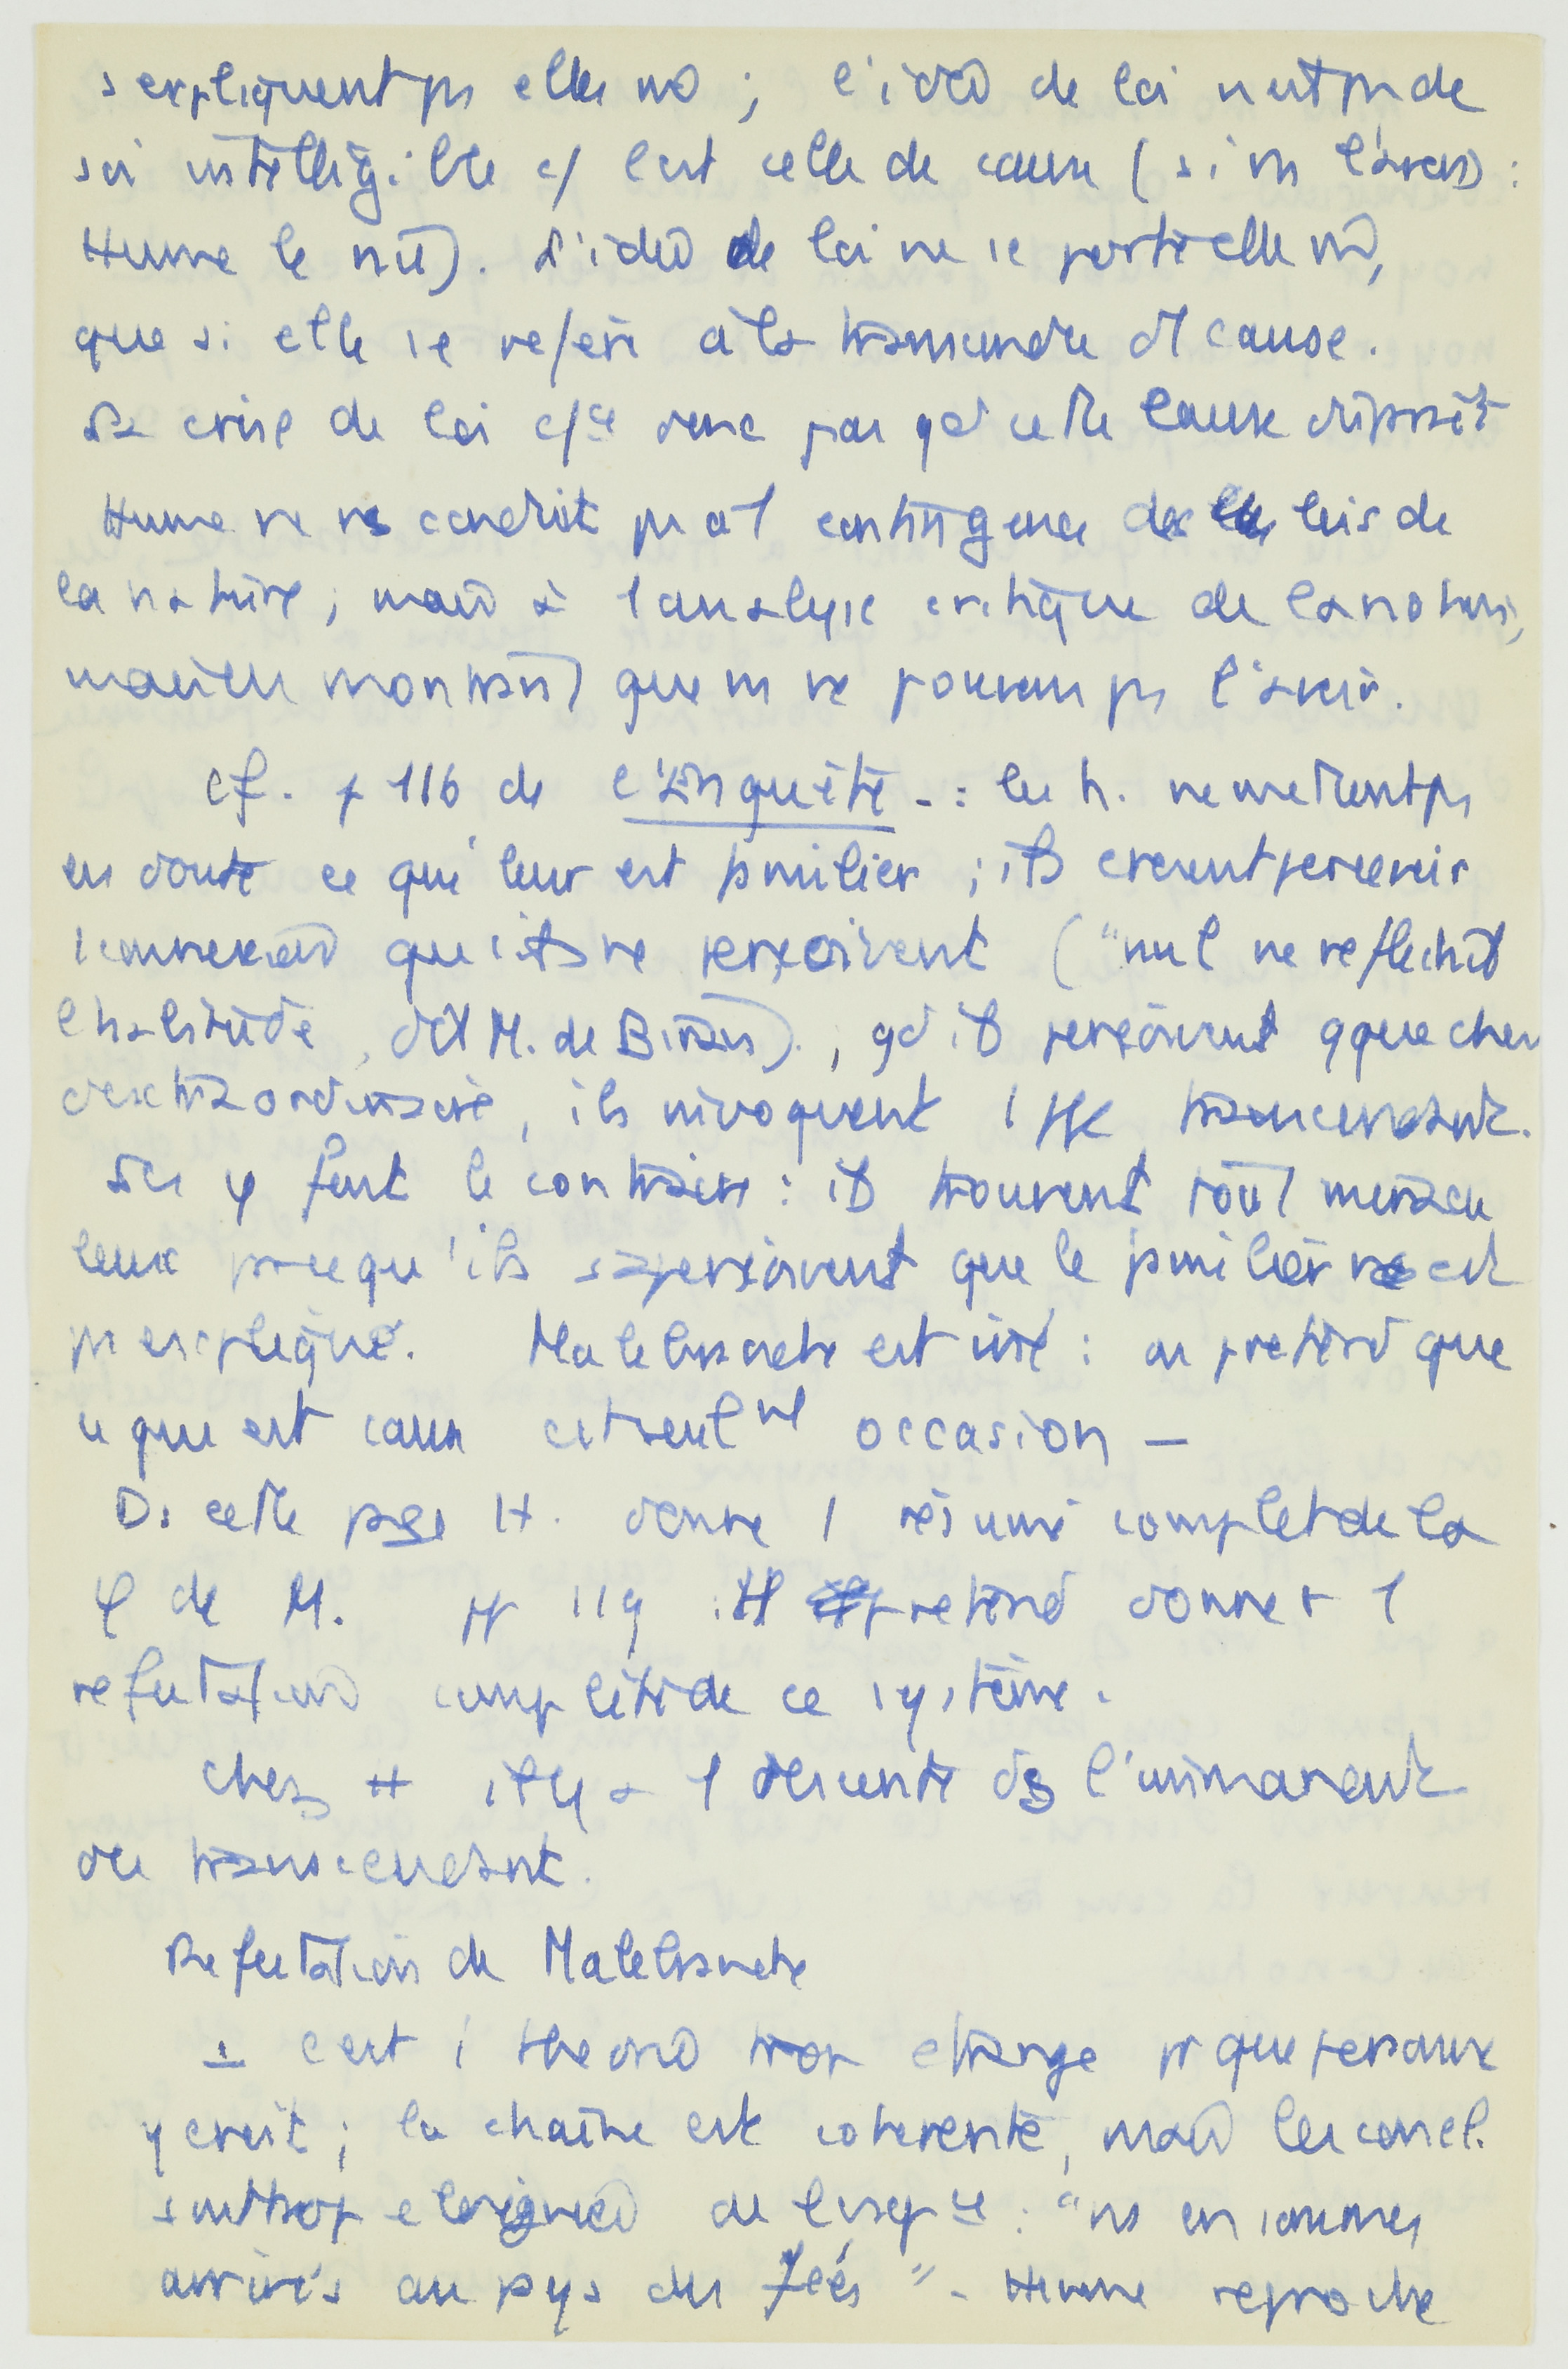 s expliquent ps elles m̂ ; l'idée de loi n'est ps de
soi intelligible c/ l'est celle de cause (si ns l'avons :
Hume le nie). L'idée de loi ne se porte elle m̂,
que si elle se réfère à la transcendce d'1 cause.
La crise de loi c/ce donc par qd cette cause disparaît
Hume ne ns conduit ps à 1 contingence des lois de
la nature ; mais à 1 analyse critique de la notion,
montrant que ns ne pouvons ps l'avoir.
cf. p 116 de l'Enquête - : les h. ne mettent ps
en doute ce qui leur est familier ; ils croient percevoir
1 connexion qu'ils ne perçoivent ("nul ne réfléchit
l'habitude, dit M. de Biran). ; qd ils perçoivent qque chose
d'extraordinaire, ils invoquent 1 transcendant.
Les φ font le contraire : ils trouvent tout miracu
leux parce qu'ils s'aperçoivent que le familier n'est
ps expliqué. Malebranche est visé : on prétend que
ce qui est cause est seulmt occasion —
Ds cette page H. donne 1 résumé complet de la
φ de M. p 119 : H prétend donner 1
réfutation complète de ce système.
Chez H il y a 1 descente ds l'immanent
du transcendant.
Réfutation de Malebranche
1 C'est 1 théorie trop étrange pr que personne
y croit ; la chaîne est cohérente, mais les concl.
sont trop éloignées de l'usage : "ns en sommes
arrivés au pays des fées" - Hume reproche